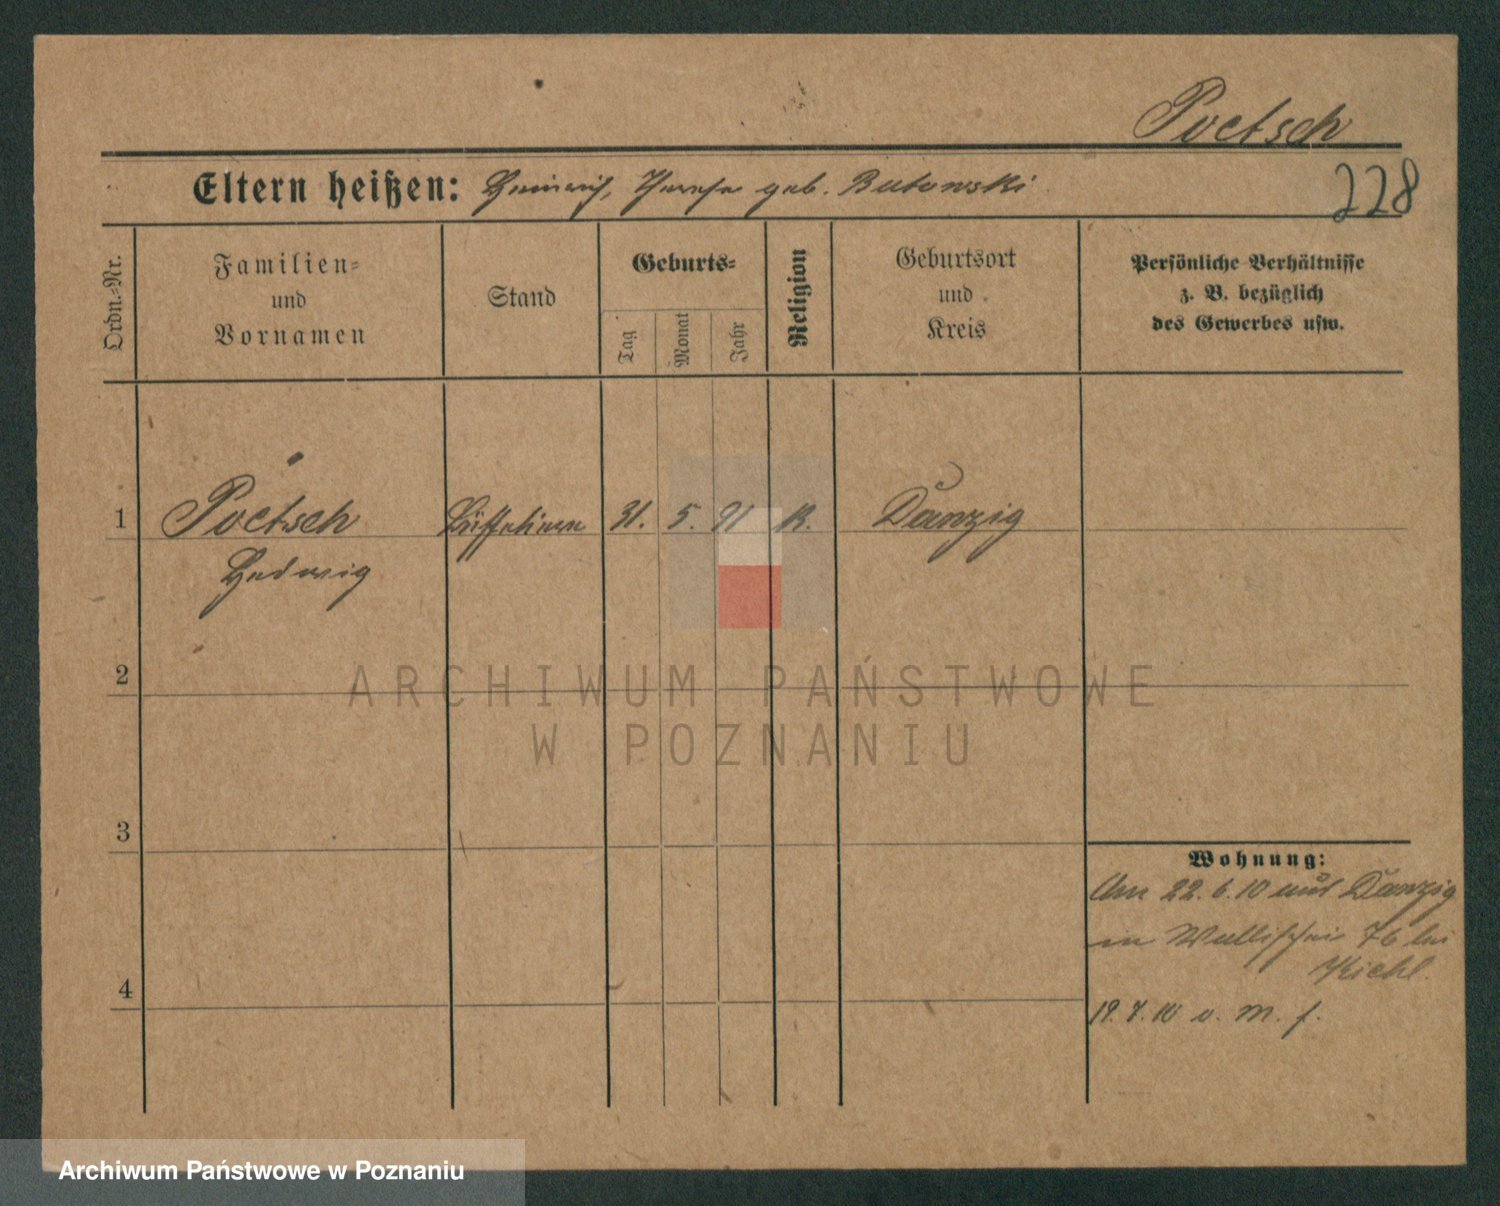 Poetsch
Eltern heißen: Heinrich, Therese geb. Butowski
228
Ordn.-Nr.
Familien-
und
Vornamen
Stand
Geburts-
Tag
Monat
Jahr
Religion
Geburtsort
und
Kreis
Persönliche Verhältnisse
z. B. bezüglich
des Gewerbes usw.
1
Poetsch
Hedwig
31. 5. 91
K.
Danzig
2
ARCHIWUM PAŃSTWOWE
W POZNANIU
3
4
Wohnung:
Am 22. 6. 10 aus Danzig
in Wallischei 76 bei
19. 7. 10 v. M. f.
Archiwum Państwowe w Poznaniu